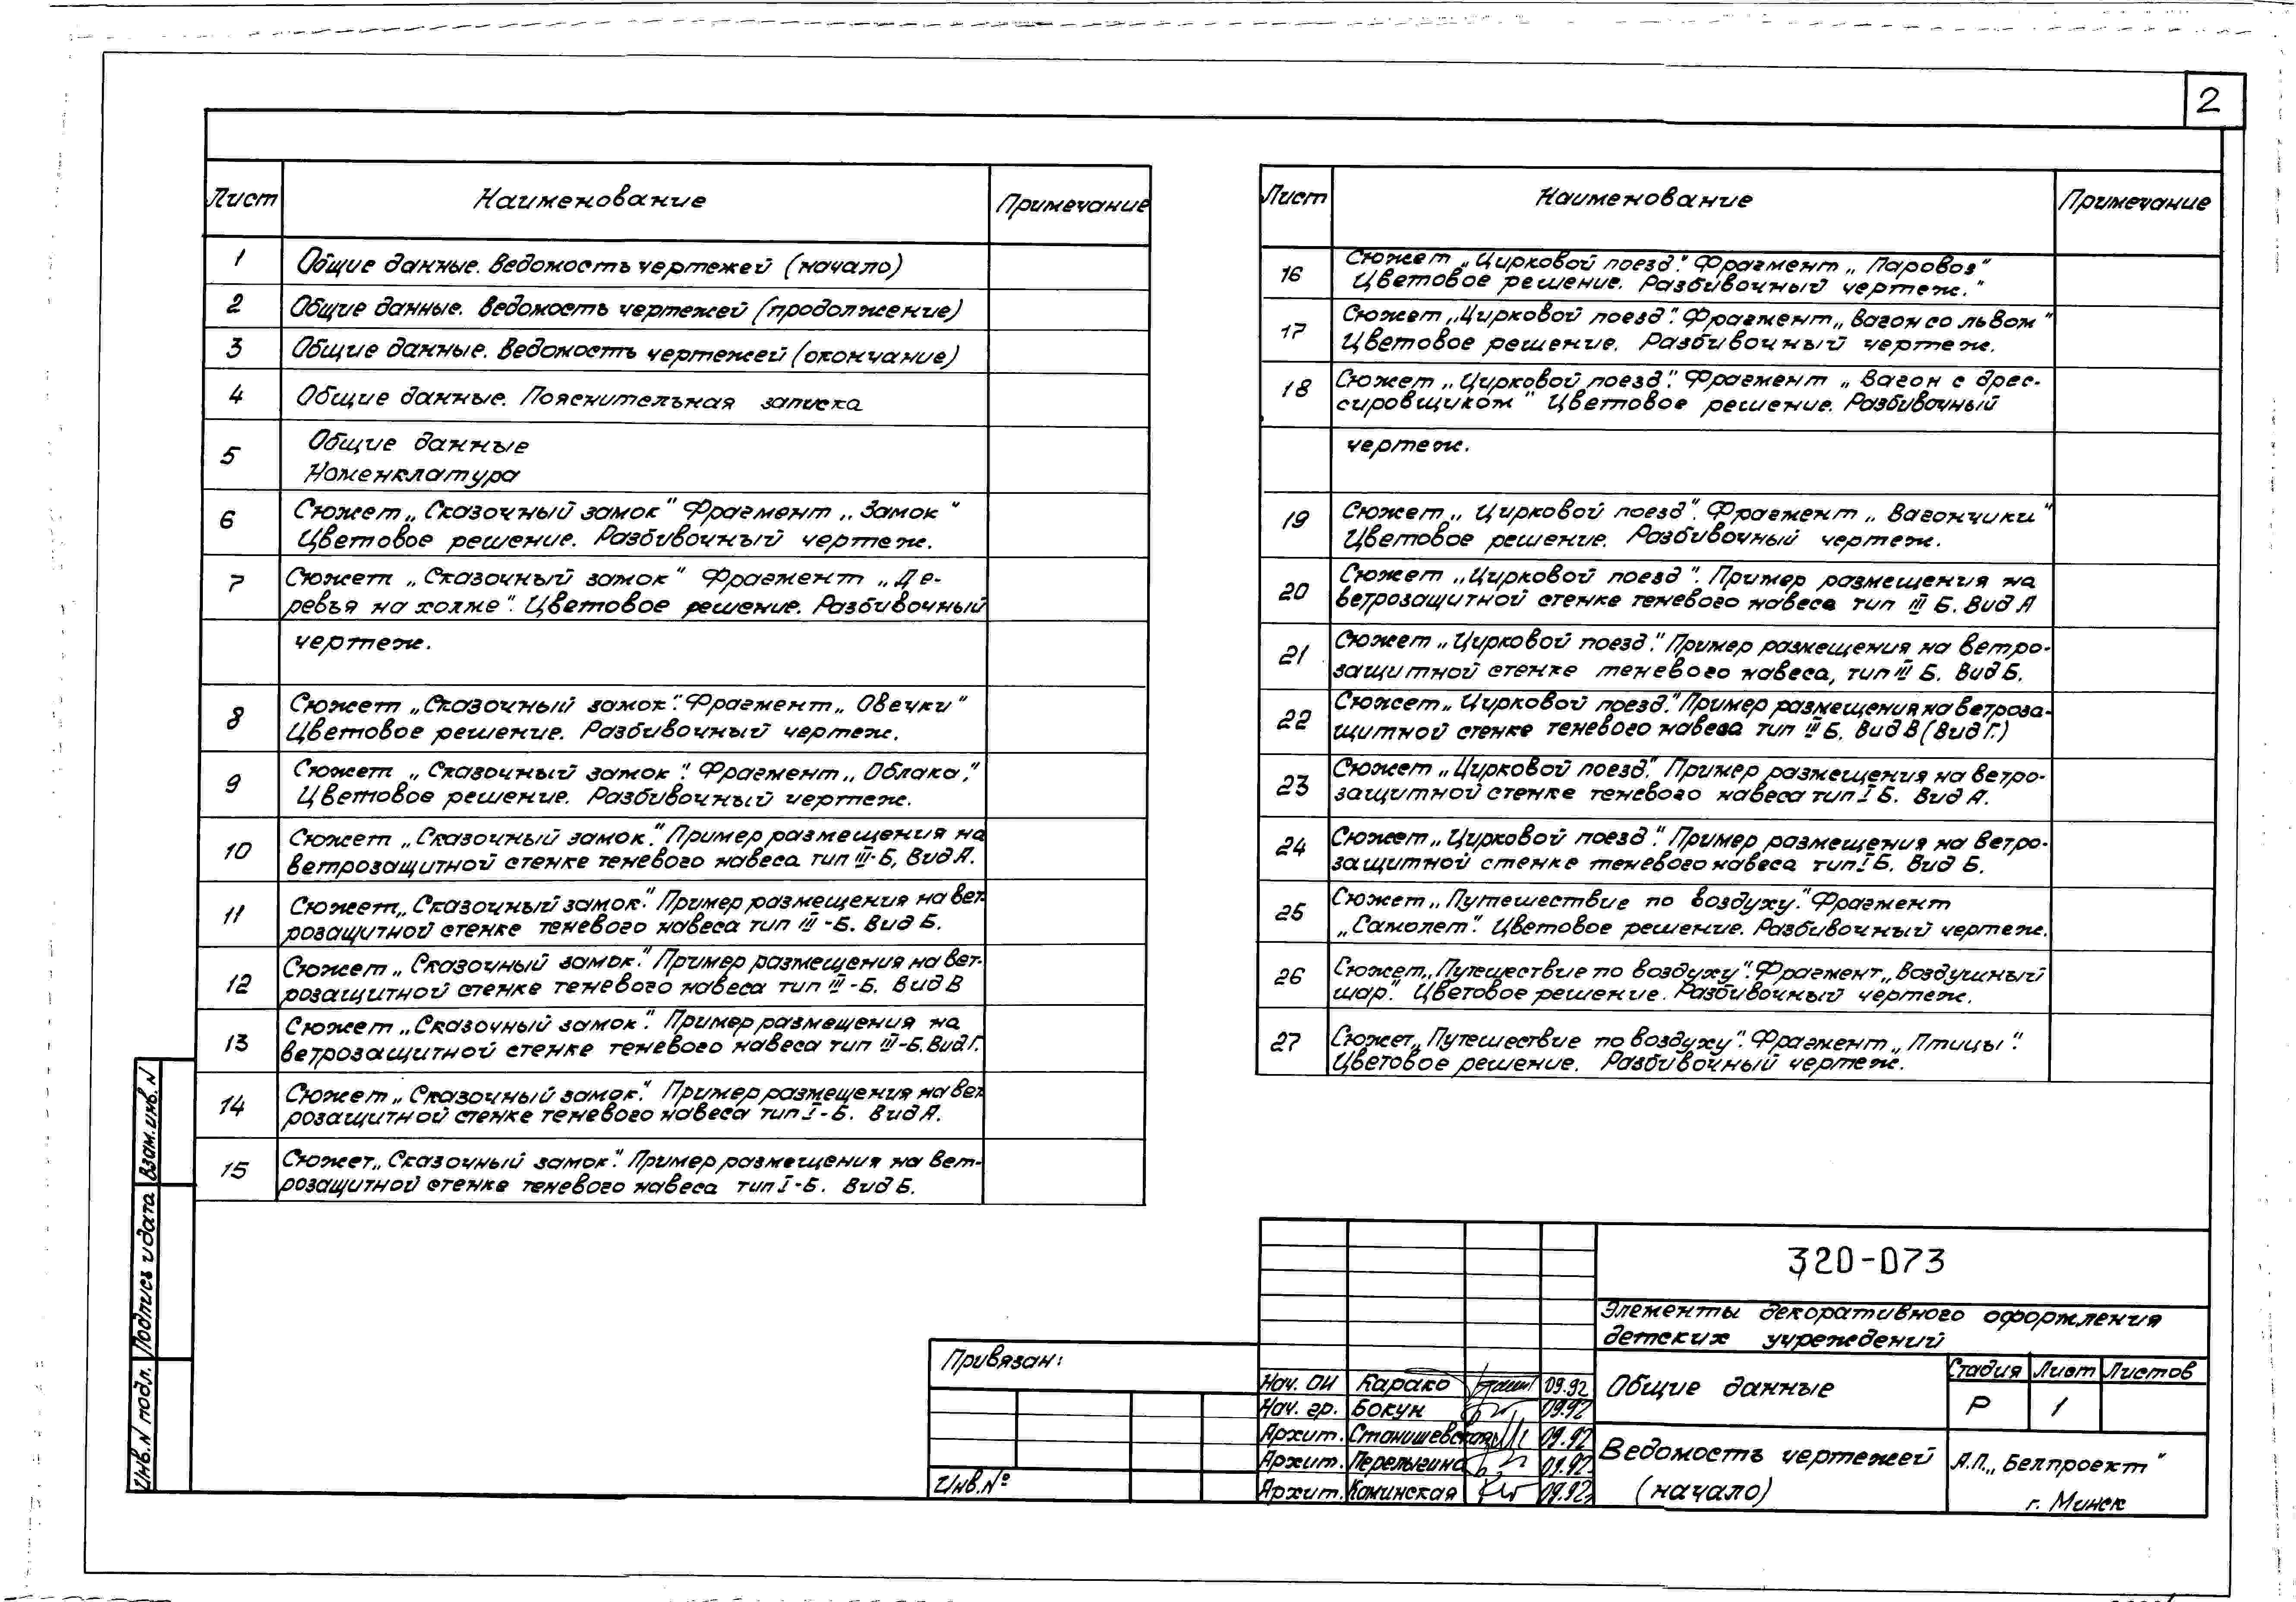 2
Лист Наименование Примечание
1 Общие данные. Ведомость чертежей (начало)
2 Общие данные. Ведомость чертежей (продолжение)
3 Общие данные. Ведомость чертежей (окончание)
4 Общие данные. Пояснительная записка
5 Общие данные
Номенклатура
6 Сюжет „Сказочный замок" Фрагмент „Замок"
Цветовое решение. Разбивочный чертеж.
7 Сюжет „Сказочный замок" Фрагмент „Де-
ревья на холме". Цветовое решение. Разбивочный
чертеж.
8 Сюжет „Сказочный замок". Фрагмент „Овечки"
Цветовое решение. Разбивочный чертеж.
9 Сюжет „Сказочный замок". Фрагмент „Облака,"
Цветовое решение. Разбивочный чертеж.
10 Сюжет „Сказочный замок". Пример размещения на
ветрозащитной стенке теневого навеса тип III-Б, Вид А.
11 Сюжет „Сказочный замок". Пример размещения на вет-
розащитной стенке теневого навеса тип III-Б. Вид Б.
12 Сюжет „Сказочный замок". Пример размещения на вет-
розащитной стенке теневого навеса тип III-Б. Вид В
13 Сюжет „Сказочный замок". Пример размещения на
ветрозащитной стенке теневого навеса тип III-Б. Вид Г.
14 Сюжет „Сказочный замок". Пример размещения на вет-
розащитной стенке теневого навеса тип I-Б. Вид А.
15 Сюжет „Сказочный замок". Пример размещения на вет-
розащитной стенке теневого навеса тип I-Б. Вид Б.
Лист Наименование Примечание
16 Сюжет „Цирковой поезд". Фрагмент „Паровоз"
Цветовое решение. Разбивочный чертеж."
17 Сюжет „Цирковой поезд". Фрагмент „Вагон со львом"
Цветовое решение. Разбивочный чертеж.
18 Сюжет „Цирковой поезд". Фрагмент „Вагон с дрес-
сировщиком" Цветовое решение. Разбивочный
чертеж.
19 Сюжет „Цирковой поезд". Фрагмент „Вагончики"
Цветовое решение. Разбивочный чертеж.
20 Сюжет „Цирковой поезд". Пример размещения на
ветрозащитной стенке теневого навеса тип III Б. Вид А
21 Сюжет „Цирковой поезд". Пример размещения на ветро-
защитной стенке теневого навеса, тип III Б. Вид Б.
22 Сюжет „Цирковой поезд". Пример размещения на ветроза-
щитной стенке теневого навеса тип III Б. Вид В (Вид Г.)
23 Сюжет „Цирковой поезд". Пример размещения на ветро-
защитной стенке теневого навеса тип I Б. Вид А.
24 Сюжет „Цирковой поезд". Пример размещения на ветро-
защитной стенке теневого навеса тип I Б. Вид Б.
25 Сюжет „Путешествие по воздуху". Фрагмент
„Самолет". Цветовое решение. Разбивочный чертеж.
26 Сюжет „Путешествие по воздуху". Фрагмент „Воздушный
шар". Цветовое решение. Разбивочный чертеж.
27 Сюжет „Путешествие по воздуху". Фрагмент „Птицы".
Цветовое решение. Разбивочный чертеж.
Взам. инв. N
Подпись и дата
Инв. N подл.
Привязан:
Инв. №
Нач. ОИ Карако 09.92
Нач. гр. Бокун 09.92
Архит. Станишевская 09.92
Архит. Перелыгина 09.92
Архит. Каминская 09.92
320-073
Элементы декоративного оформления
детских учреждений
Общие данные
Стадия Лист Листов
Р 1
Ведомость чертежей
(начало)
А.П. „Белпроект"
г. Минск